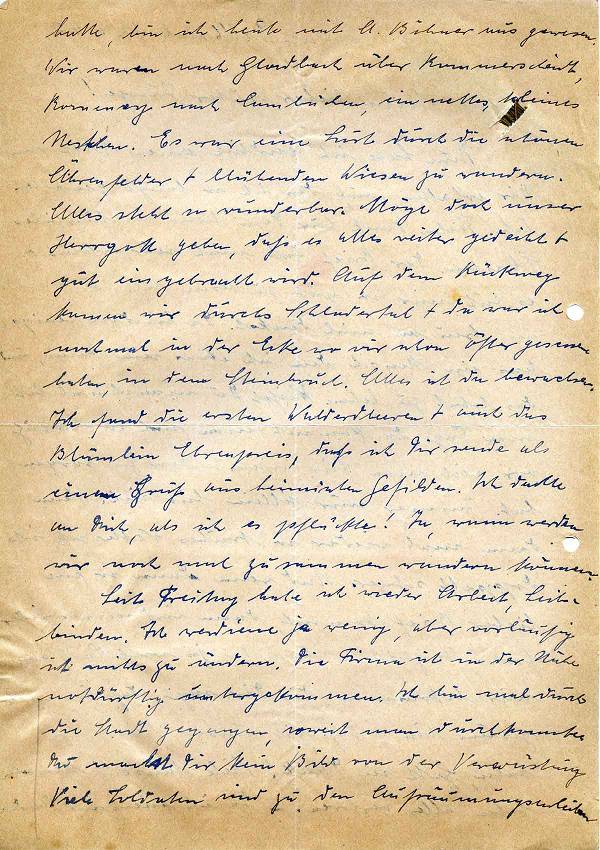 hatte, bin ich heute mit A. Böhner aus gewesen.
Wir waren nach Gladbach über Kommerscheidt,
nach ein nettes, kleines
Nestchen. Es war eine Lust durch die schönen
Ährenfelder + blühenden Wiesen zu wandern.
Alles steht so wunderbar. Mögt doch unser
Herrgott geben, daß es alles weiter gedeiht +
gut eingebracht wird. Auf dem Rückweg
kamen wir durchs Schladertal + da war ich
nochmal in der Ecke wo wir schon öfter gesessen
haben, in dem Steinbruch. Alles ist da bewachsen.
Ich fand die ersten Walderdbeeren + auch das
Blümlein Ehrenpreis, daß ich Dir sende als
einen Gruß aus heimischen Gefilden. Ich dachte
an Dich, als ich es pflückte! Ja, wann werden
wir noch mal zusammen wandern können.
Seit Freitag habe ich wieder Arbeit, Leib-
binden. Ich verdiene ja wenig, aber vorläufig
ist nichts zu ändern. Die Firma ist in der Nähe
notdürftig untergekommen. Ich bin mal durch
die Stadt gegangen, soweit man durchkonnte
Du machst Dir kein Bild von der Verwüstung
Viele Soldaten sind zu den Aufräumungsarbeiten